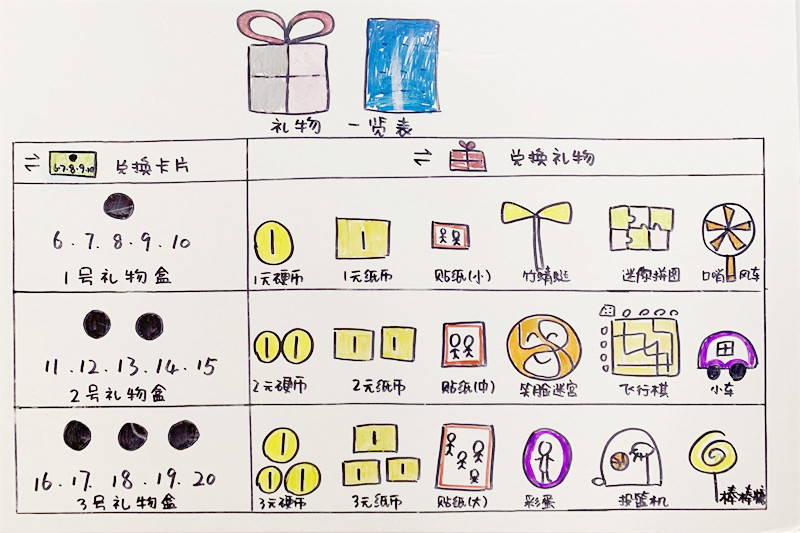 礼物一览表
⇌ 6.7.8.9.10 兑换卡片
⇌ 兑换礼物
6.7.8.9.10
1号礼物盒
1 1 1
1元硬币 1元纸币 贴纸(小) 竹蜻蜓 迷你拼图 口哨风车
11.12.13.14.15
2号礼物盒
1 1 1 1
2元硬币 2元纸币 贴纸(中) 笑脸迷宫 飞行棋 小车
16.17.18.19.20
3号礼物盒
1 1 1 1 1 1
3元硬币 3元纸币 贴纸(大) 彩蛋 投篮机 棒棒糖